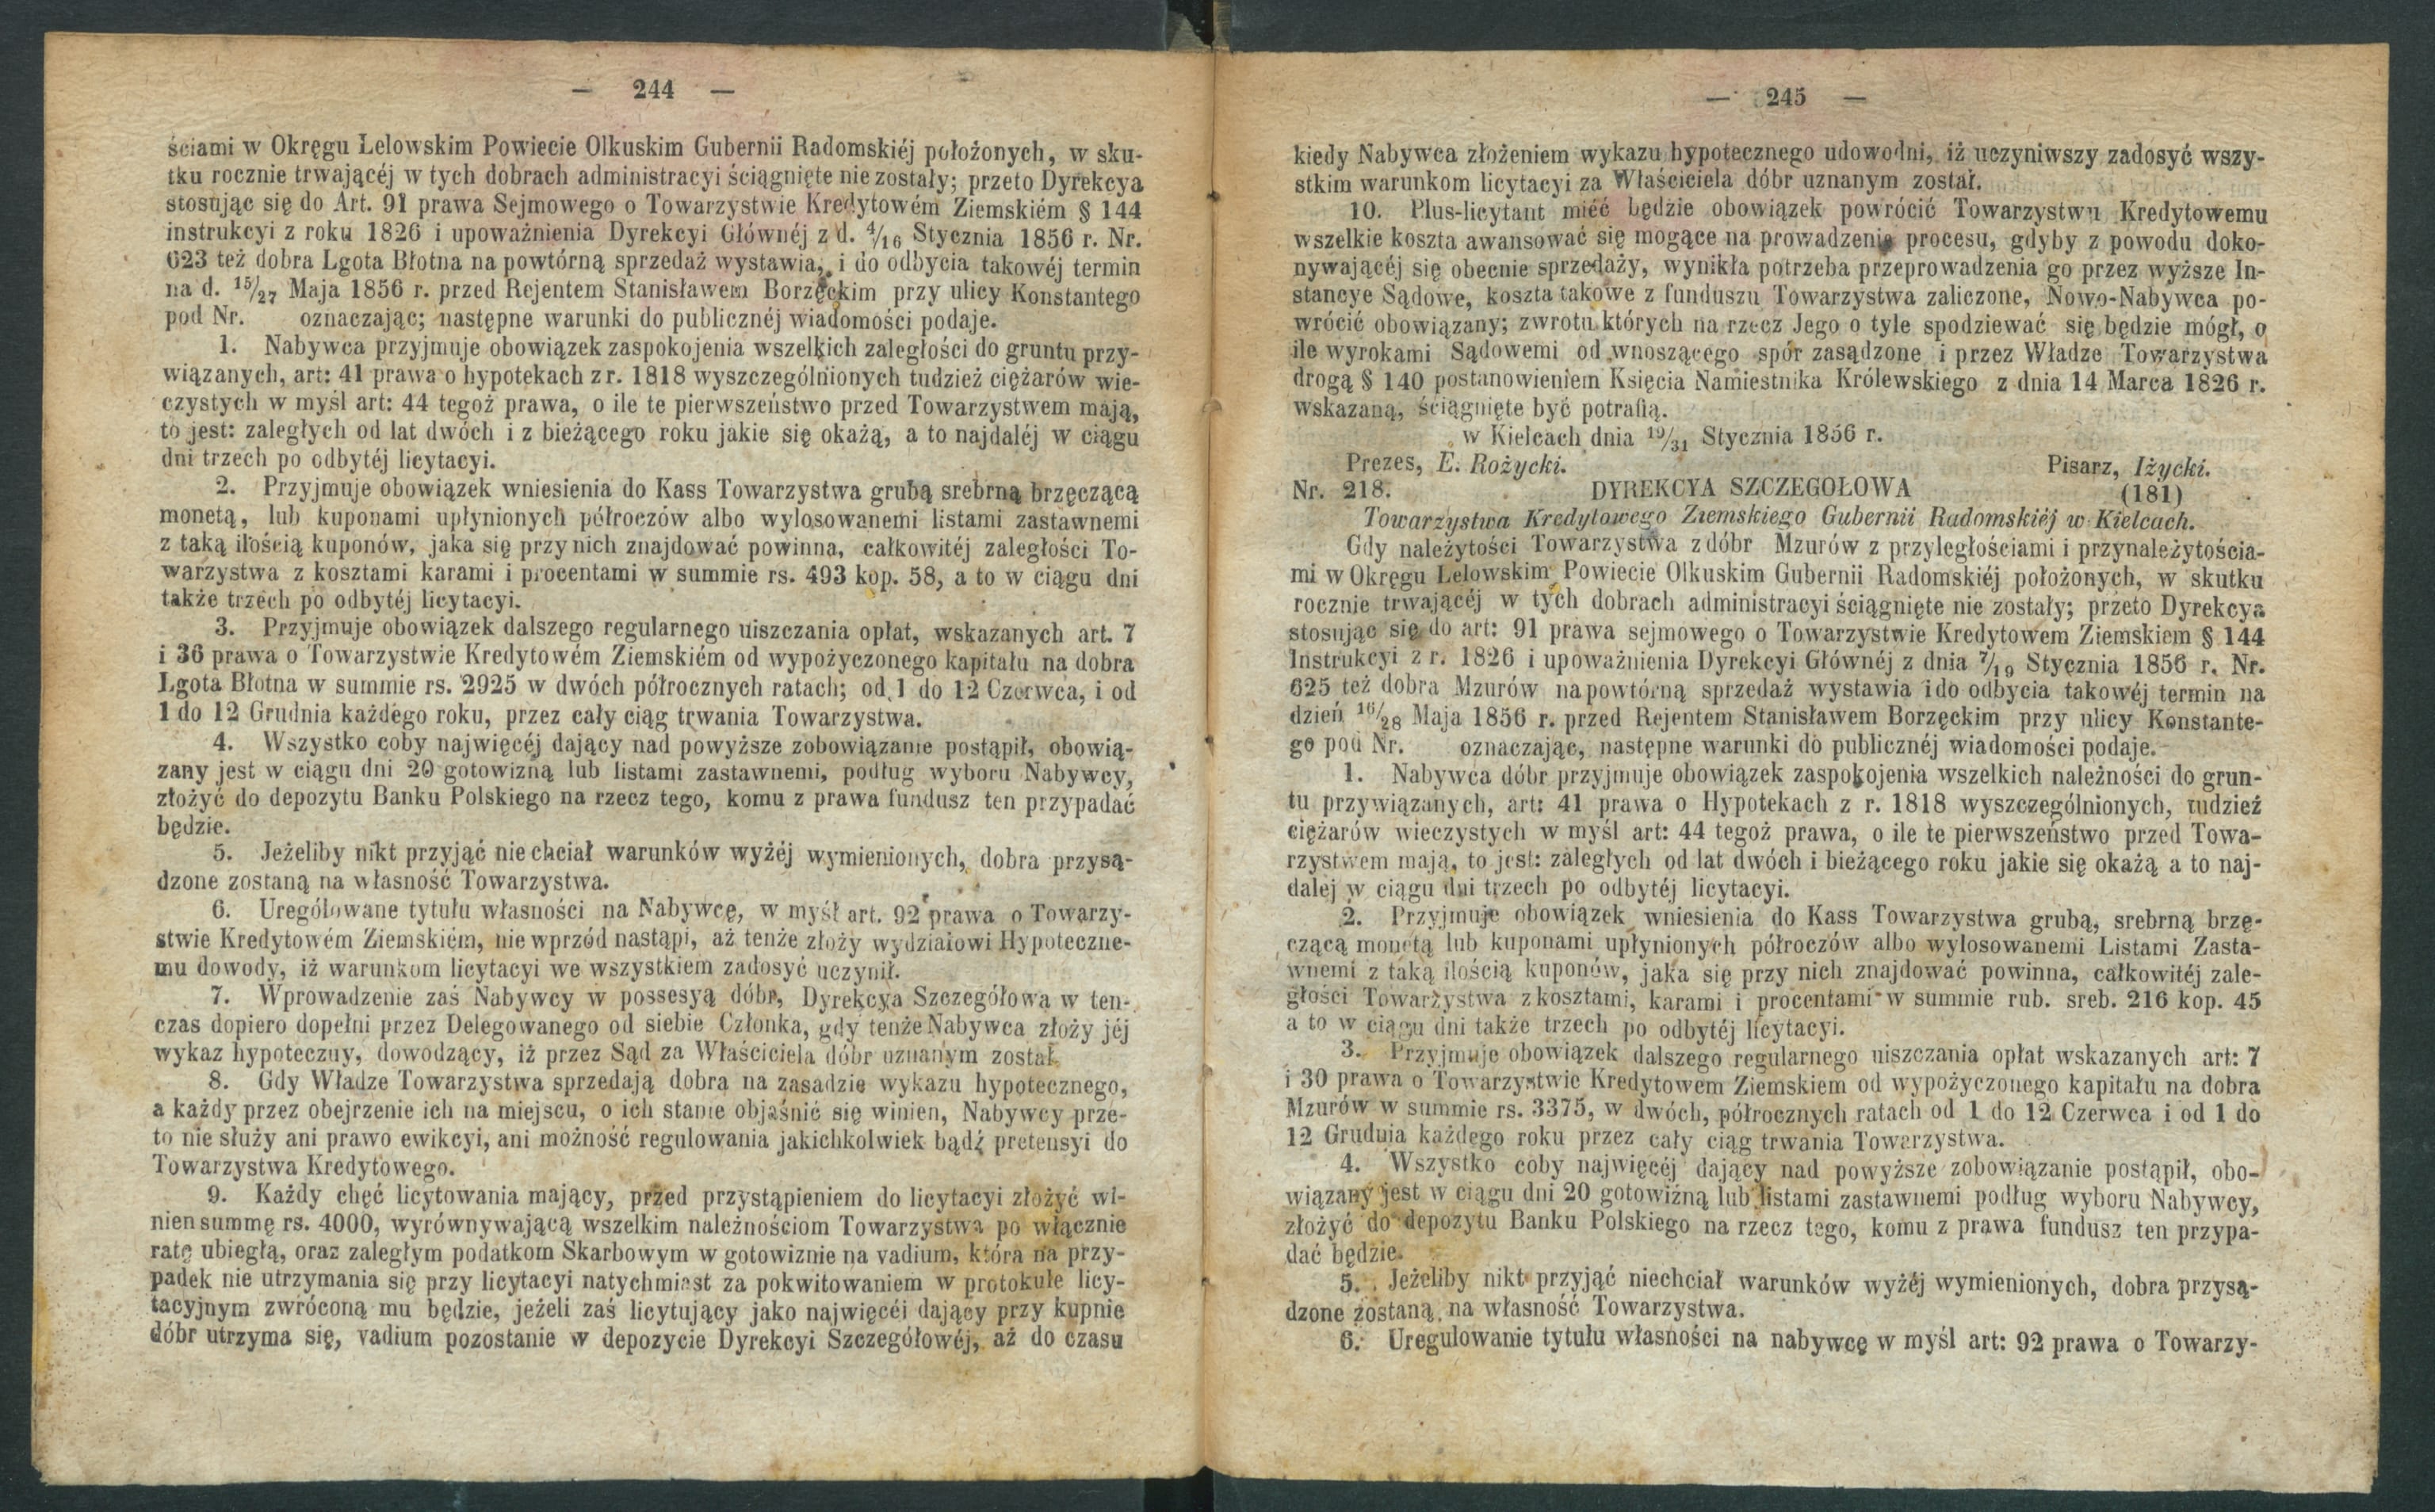 — 244 —
ściami w Okręgu Lelowskim Powiecie Olkuskim Gubernii Radomskiéj położonych, w sku-
tku rocznie trwającéj w tych dobrach administracyi ściągnięte nie zostały; przeto Dyrekcya
stosując się do Art. 91 prawa Sejmowego o Towarzystwie Kredytowém Ziemskiém § 144
instrukcyi z roku 1826 i upoważnienia Dyrekcyi Głównéj z d. 4/16 Stycznia 1856 r. Nr.
623 też dobra Lgota Błotna na powtórną sprzedaż wystawia, i do odbycia takowéj termin
na d. 15/27 Maja 1856 r. przed Rejentem Stanisławem Borzęckim przy ulicy Konstantego
pod Nr. oznaczając; następne warunki do publicznéj wiadomości podaje.
1. Nabywca przyjmuje obowiązek zaspokojenia wszelkich zaległości do gruntu przy-
wiązanych, art: 41 prawa o hypotekach z r. 1818 wyszczególnionych tudzież ciężarów wie-
czystych w myśl art: 44 tegoż prawa, o ile te pierwszeństwo przed Towarzystwem mają,
to jest: zaległych od lat dwóch i z bieżącego roku jakie się okażą, a to najdaléj w ciągu
dni trzech po odbytéj licytacyi.
2. Przyjmuje obowiązek wniesienia do Kass Towarzystwa grubą srebrną brzęczącą
monetą, lub kuponami upłynionych półroczów albo wylosowanemi listami zastawnemi
z taką ilością kuponów, jaka się przy nich znajdować powinna, całkowitéj zaległości To-
warzystwa z kosztami karami i procentami w summie rs. 493 kop. 58, a to w ciągu dni
także trzech po odbytéj licytacyi.
3. Przyjmuje obowiązek dalszego regularnego uiszczania opłat, wskazanych art. 7
i 36 prawa o Towarzystwie Kredytowém Ziemskiém od wypożyczonego kapitału na dobra
Lgota Błotna w summie rs. 2925 w dwóch półrocznych ratach; od 1 do 12 Czerwca, i od
1 do 12 Grudnia każdego roku, przez cały ciąg trwania Towarzystwa.
4. Wszystko coby najwięcéj dający nad powyższe zobowiązanie postąpił, obowią-
zany jest w ciągu dni 20 gotowizną lub listami zastawnemi, podług wyboru Nabywcy,
złożyć do depozytu Banku Polskiego na rzecz tego, komu z prawa fundusz ten przypadać
będzie.
5. Jeżeliby nikt przyjąć nie chciał warunków wyżéj wymienionych, dobra przysą-
dzone zostaną na własność Towarzystwa.
6. Urególowane tytułu własności na Nabywcę, w myśl art. 92 prawa o Towarzy-
stwie Kredytowém Ziemskiém, nie wprzód nastąpi, aż tenże złoży wydziałowi Hypoteczne-
mu dowody, iż warunkom licytacyi we wszystkiem zadosyć uczynił.
7. Wprowadzenie zaś Nabywcy w possesyą dóbr, Dyrekcya Szczegółowa w ten-
czas dopiero dopełni przez Delegowanego od siebie Członka, gdy tenże Nabywca złoży jéj
wykaz hypoteczny, dowodzący, iż przez Sąd za Właściciela dóbr uznanym został.
8. Gdy Władze Towarzystwa sprzedają dobra na zasadzie wykazu hypotecznego,
a każdy przez obejrzenie ich na miejscu, o ich stanie objaśnić się winien, Nabywcy prze-
to nie służy ani prawo ewikcyi, ani możność regulowania jakichkolwiek bądź pretensyi do
Towarzystwa Kredytowego.
9. Każdy chęć licytowania mający, przed przystąpieniem do licytacyi złożyć wi-
nien summę rs. 4000, wyrównywającą wszelkim należnościom Towarzystwa po włącznie
ratę ubiegłą, oraz zaległym podatkom Skarbowym w gotowiznie na vadium, która na przy-
padek nie utrzymania się przy licytacyi natychmiast za pokwitowaniem w protokule licy-
tacyjnym zwróconą mu będzie, jeżeli zaś licytujący jako najwięcéj dający przy kupnie
dóbr utrzyma się, vadium pozostanie w depozycie Dyrekcyi Szczegółowéj, aż do czasu
— 245 —
kiedy Nabywca złożeniem wykazu hypotecznego udowodni, iż uczyniwszy zadosyć wszy-
stkim warunkom licytacyi za Właściciela dóbr uznanym został.
10. Plus-licytant miéć będzie obowiązek powrócić Towarzystwu Kredytowemu
wszelkie koszta awansować się mogące na prowadzenie procesu, gdyby z powodu doko-
nywającéj się obecnie sprzedaży, wynikła potrzeba przeprowadzenia go przez wyższe In-
stancye Sądowe, koszta takowe z funduszu Towarzystwa zaliczone, Nowo-Nabywca po-
wrócić obowiązany; zwrotu których na rzecz Jego o tyle spodziewać się będzie mógł, o
ile wyrokami Sądowemi od wnoszącego spór zasądzone i przez Władze Towarzystwa
drogą § 140 postanowieniem Księcia Namiestnika Królewskiego z dnia 14 Marca 1826 r.
wskazaną, ściągnięte być potrafią.
w Kielcach dnia 19/31 Stycznia 1856 r.
Prezes, E. Rożycki. Pisarz, Iżycki.
Nr. 218. DYREKCYA SZCZEGÓŁOWA (181)
Towarzystwa Kredytowego Ziemskiego Gubernii Radomskiéj w Kielcach.
Gdy należytości Towarzystwa z dóbr Mzurów z przyległościami i przynależytościa-
mi w Okręgu Lelowskim Powiecie Olkuskim Gubernii Radomskiéj położonych, w skutku
rocznie trwającéj w tych dobrach administracyi ściągnięte nie zostały; przeto Dyrekcya
stosując się do art: 91 prawa sejmowego o Towarzystwie Kredytowem Ziemskiem § 144
Instrukcyi z r. 1826 i upoważnienia Dyrekcyi Głównéj z dnia 7/19 Stycznia 1856 r. Nr.
625 też dobra Mzurów na powtórną sprzedaż wystawia i do odbycia takowéj termin na
dzień 16/28 Maja 1856 r. przed Rejentem Stanisławem Borzęckim przy ulicy Konstante-
go pod Nr. oznaczając, następne warunki do publicznéj wiadomości podaje.
1. Nabywca dóbr przyjmuje obowiązek zaspokojenia wszelkich należności do grun-
tu przywiązanych, art: 41 prawa o Hypotekach z r. 1818 wyszczególnionych, tudzież
ciężarów wieczystych w myśl art: 44 tegoż prawa, o ile te pierwszeństwo przed Towa-
rzystwem mają, to jest: zaległych od lat dwóch i bieżącego roku jakie się okażą a to naj-
dalej w ciągu dni trzech po odbytéj licytacyi.
2. Przyjmuje obowiązek wniesienia do Kass Towarzystwa grubą, srebrną brzę-
czącą monetą lub kuponami upłynionych półroczów albo wylosowanemi Listami Zasta-
wnemi z taką ilością kuponów, jaka się przy nich znajdować powinna, całkowitéj zale-
głości Towarzystwa z kosztami, karami i procentami w summie rub. sreb. 216 kop. 45
a to w ciągu dni także trzech po odbytéj licytacyi.
3. Przyjmuje obowiązek dalszego regularnego uiszczania opłat wskazanych art: 7
i 30 prawa o Towarzystwie Kredytowem Ziemskiem od wypożyczonego kapitału na dobra
Mzurów w summie rs. 3375, w dwóch, półrocznych ratach od 1 do 12 Czerwca i od 1 do
12 Grudnia każdego roku przez cały ciąg trwania Towarzystwa.
4. Wszystko coby najwięcéj dający nad powyższe zobowiązanie postąpił, obo-
wiązany jest w ciągu dni 20 gotowizną lub listami zastawnemi podług wyboru Nabywcy,
złożyć do depozytu Banku Polskiego na rzecz tego, komu z prawa fundusz ten przypa-
dać będzie.
5. Jeżeliby nikt przyjąć niechciał warunków wyżéj wymienionych, dobra przysą-
dzone zostaną na własność Towarzystwa.
6. Uregulowanie tytułu własności na nabywcę w myśl art: 92 prawa o Towarzy-